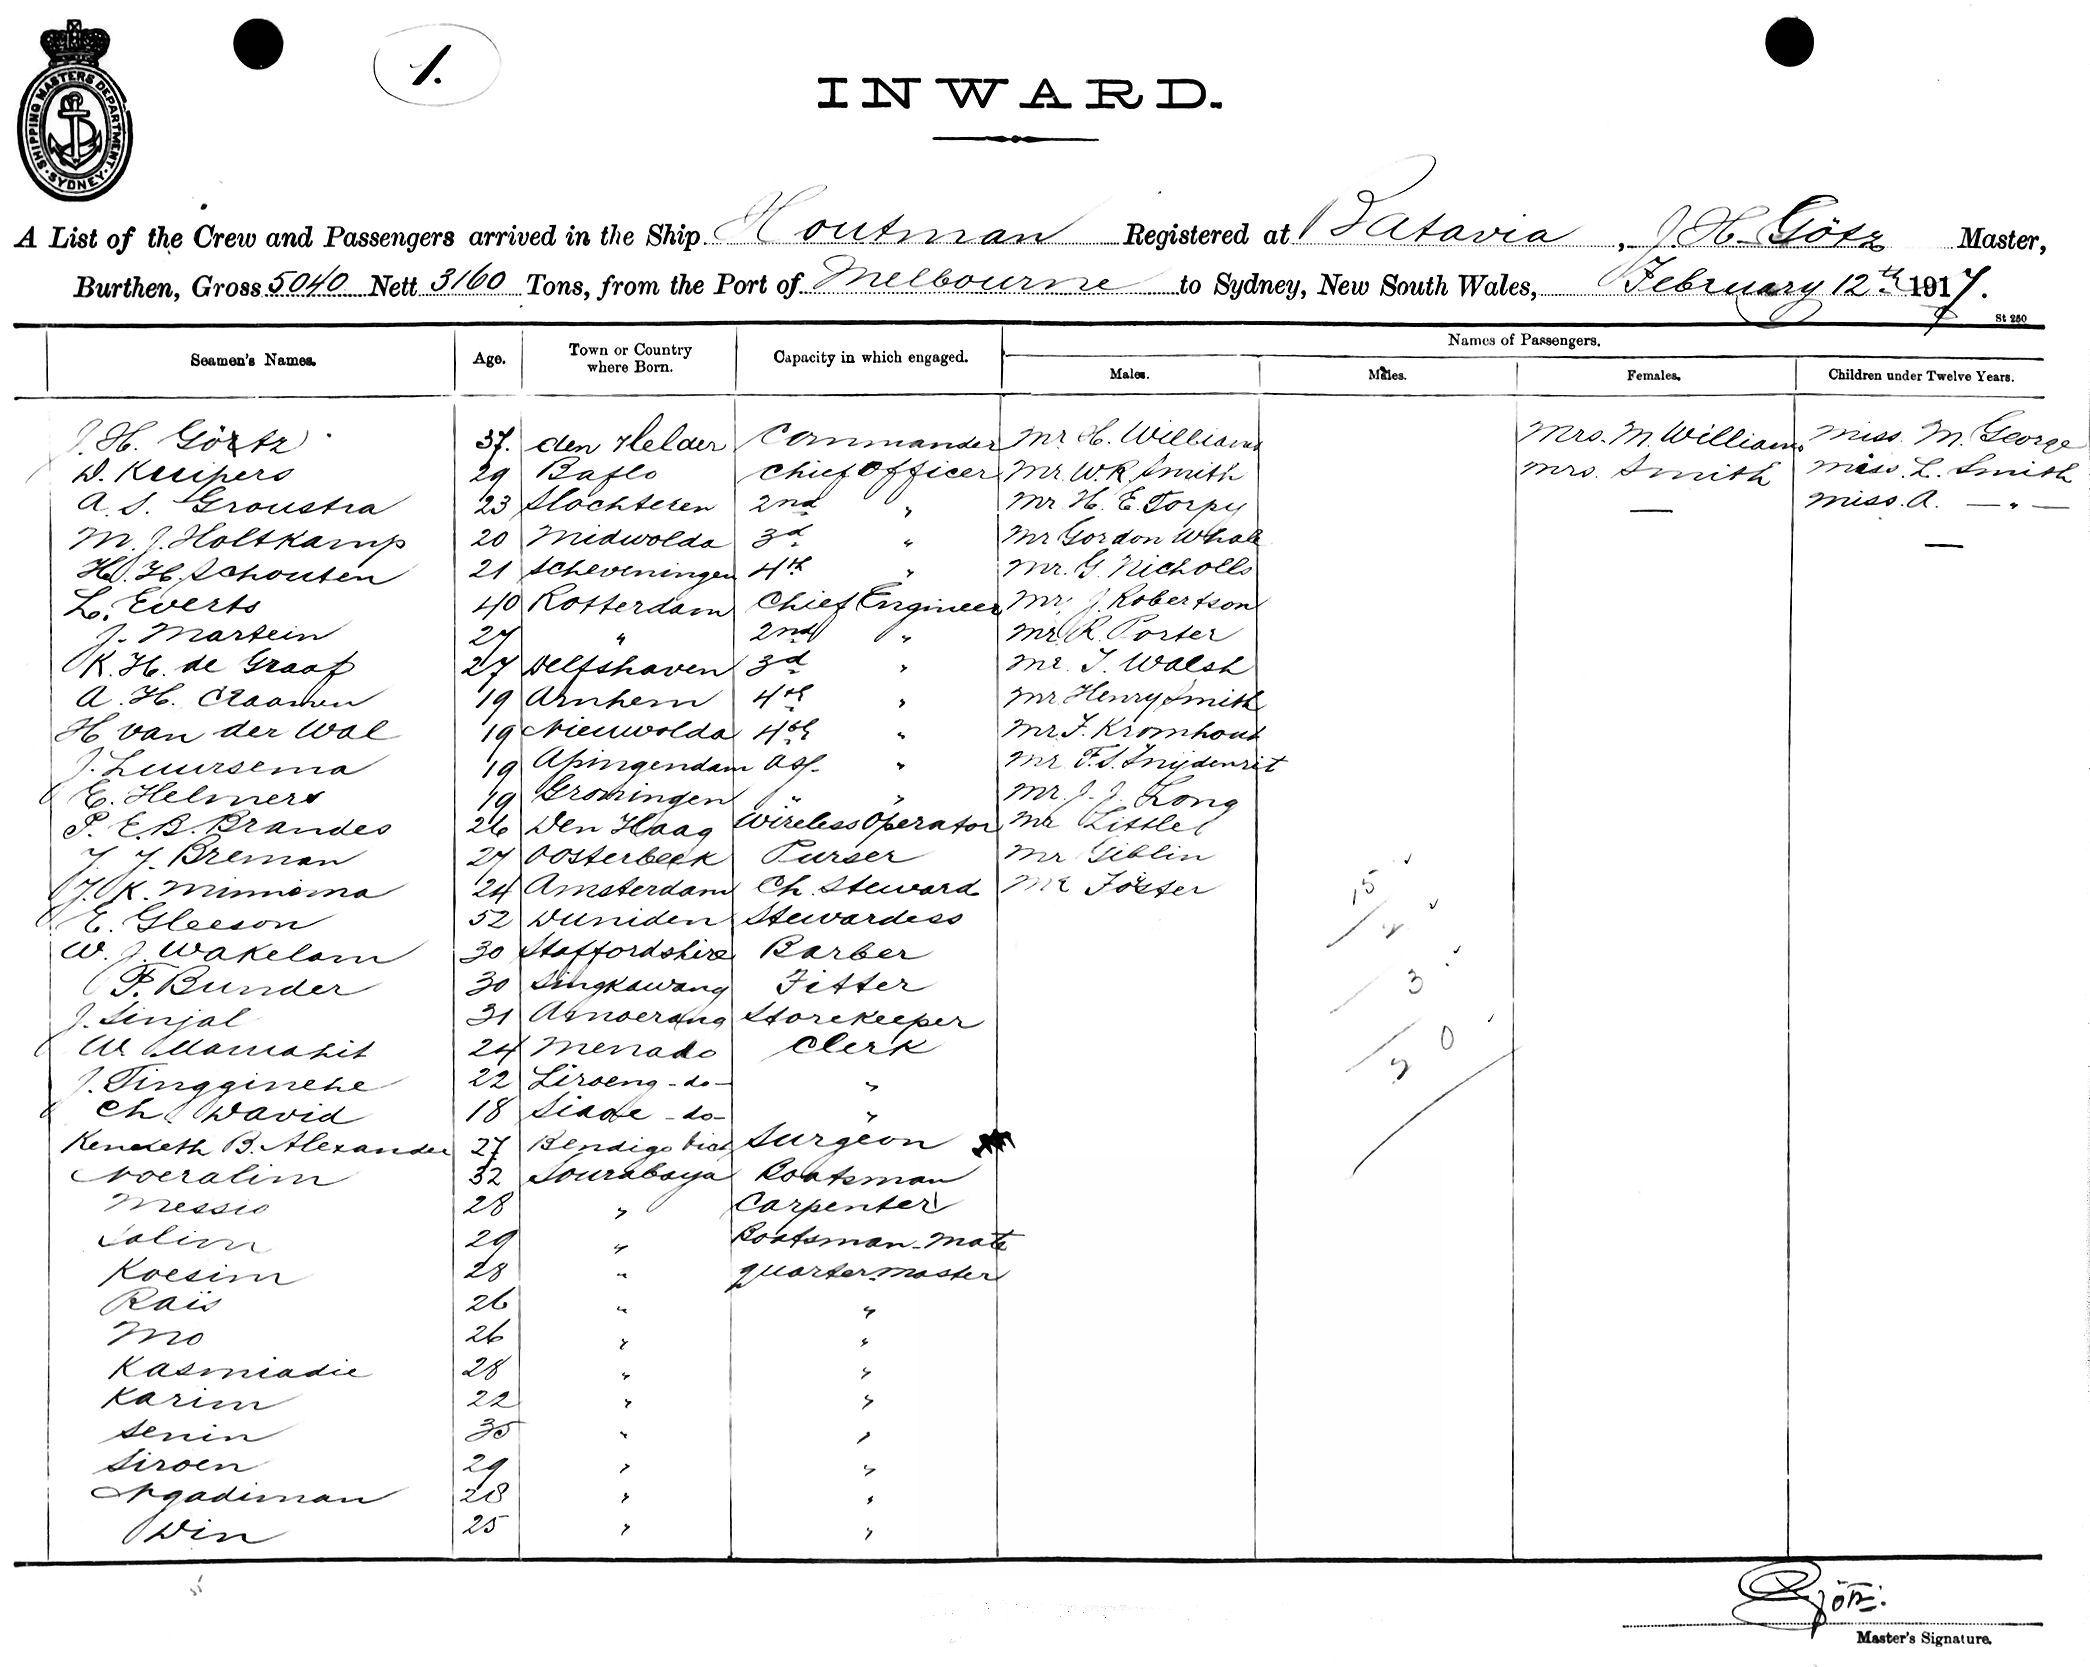 SHIPPING MASTERS DEPARTMENT · SYDNEY ·
1.
INWARD.
A List of the Crew and Passengers arrived in the Ship Houtman Registered at Batavia, J. H. Götz Master,
Burthen, Gross 5040 Nett 3160 Tons, from the Port of Melbourne to Sydney, New South Wales, February 12th 1917.
St 250
Seamen's Names. Age. Town or Country where Born. Capacity in which engaged. Names of Passengers.
Males. Males. Females. Children under Twelve Years.
J. H. Götz 37. den Helder Commander Mr H. Williams Mrs. M. Williams Miss. M. George
D. Kuipers 29 Baflo Chief Officer Mr. W. R. Smith Mrs. Smith Miss. L. Smith
A. S. Groustra 23 Slochteren 2nd " Mr H. E. Torpy — Miss. A. — " —
M. J. Holtkamp 20 Midwolda 3d " Mr Gordon Whale —
H. H. Schouten 21 Scheveningen 4th " Mr. G. Nicholls
L. Everts 40 Rotterdam Chief Engineer Mr. J. Robertson
J. Martein 27 " 2nd " Mr. R. Porter
K. H. de Graaf 27 Delfshaven 3d " Mr. T. Walsh
A. H. Claamen 19 Arnhem 4th " Mr Henry Smith
H van der Wal 19 Nieuwolda 4th " Mr. F. Kromhout
J. Luursema 19 Apingendam ass. " Mr F. S.
E. Helmers 19 Groningen " " Mr. J. J. Long
P. E. B. Brandes 26 Den Haag Wireless Operator Mr Little
J. J. Breman 27 Oosterbeek Purser Mr Giblin
J. K. Minnema 24 Amsterdam Ch. Steward Mr Foster 15
E. Gleeson 52 Duniden Stewardess
W. J. Wakelam 30 Staffordshire Barber
P. Bunder 30 Singkawang Fitter 3
J. Sinjal 31 Amoerang Storekeeper
W Mamahit 24 Menado Clerk 0
J. Tingginehe 22 Liroeng -do- "
Ch. David 18 Siaoe -do- "
Kenneth B. Alexander 27 Bendigo Vict Surgeon
Noeralim 32 Sourabaya Bootsman
Messio 28 " Carpenter
Salim 29 " Bootsman-Mate
Koesim 28 " quartermaster
Raïs 26 " "
Mo 26 " "
Kasmiadie 28 " "
Karim 22 " "
Senin 35 " "
Siroen 29 " "
Ngadiman 28 " "
Win 25 " "
Götz.
Master's Signature.